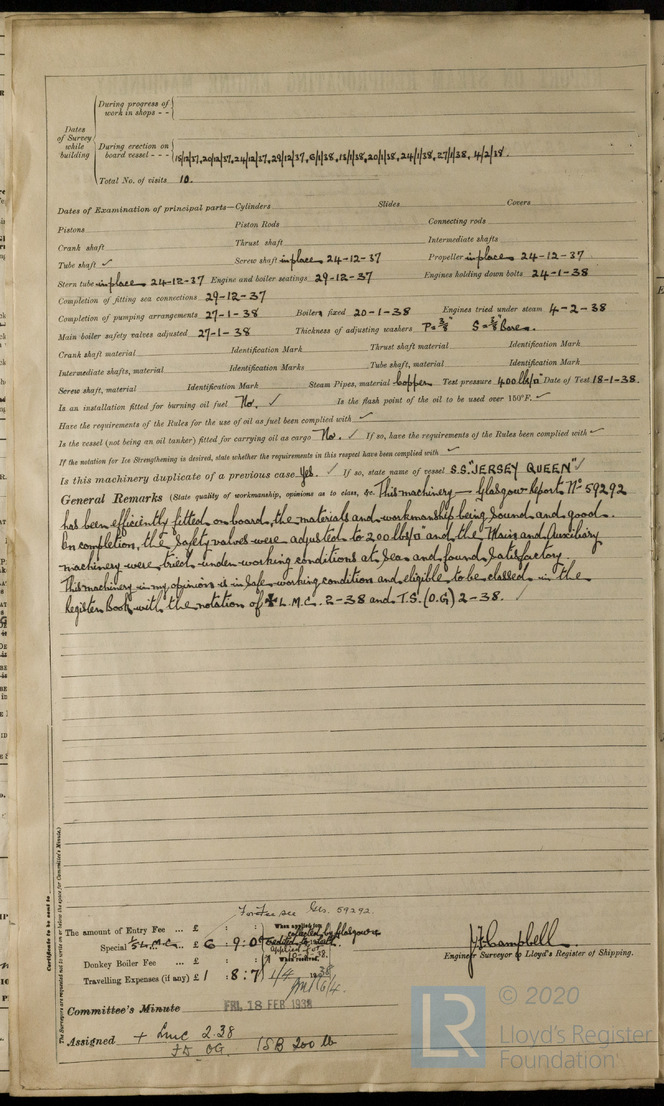 During progress of work in shops - -
Dates of Survey while building
During erection on board vessel - - - 15/12/37, 20/12/37, 24/12/37, 29/12/37, 6/1/38, 13/1/38, 20/1/38, 24/1/38, 27/1/38, 4/2/38.
Total No. of visits 10.
Dates of Examination of principal parts—Cylinders Slides Covers
Pistons Piston Rods Connecting rods
Crank shaft Thrust shaft Intermediate shafts
Tube shaft ✓ Screw shaft in place 24-12-37 Propeller in place 24-12-37
Stern tube in place 24-12-37 Engine and boiler seatings 29-12-37 Engines holding down bolts 24-1-38
Completion of fitting sea connections 29-12-37
Completion of pumping arrangements 27-1-38 Boilers fixed 20-1-38 Engines tried under steam 4-2-38
Main boiler safety valves adjusted 27-1-38 Thickness of adjusting washers P=3/8" S=3/8" Bare.
Crank shaft material Identification Mark Thrust shaft material Identification Mark
Intermediate shafts, material Identification Marks Tube shaft, material Identification Mark
Screw shaft, material Identification Mark Steam Pipes, material Copper Test pressure 400 lbs/□" Date of Test 18-1-38.
Is an installation fitted for burning oil fuel No. ✓ Is the flash point of the oil to be used over 150°F. ✓
Have the requirements of the Rules for the use of oil as fuel been complied with ✓
Is the vessel (not being an oil tanker) fitted for carrying oil as cargo No. ✓ If so, have the requirements of the Rules been complied with ✓
If the notation for Ice Strengthening is desired, state whether the requirements in this respect have been complied with ✓
Is this machinery duplicate of a previous case Yes. ✓ If so, state name of vessel S.S. "JERSEY QUEEN" ✓
General Remarks (State quality of workmanship, opinions as to class, &c. This machinery — Glasgow Report No 59292
has been efficiently fitted on board, the materials and workmanship being sound and good.
On completion, the safety valves were adjusted to 200 lbs/□" and the Main and Auxiliary
machinery were tried under working conditions at sea and found satisfactory.
This machinery in my opinion is in safe working condition and eligible to be classed in the
Register Book with the notation of ✠ L.M.C. 2-38 and T.S. (O.G) 2-38. ✓
Certificate to be sent to
The Surveyors are requested not to write on or below the space for Committee's Minute.)
For Fee see Gls. 59292
The amount of Entry Fee ... £ : : When applied for,
Special 1/5 L.M.C. ... £ 6 : 9 : 0 collected by Glasgow
Donkey Boiler Fee £ : : When received,
Travelling Expenses (if any) £ 1 : 8 : 7 1/4 1938
J H Campbell
Engineer Surveyor to Lloyd's Register of Shipping.
Committee's Minute FRI. 18 FEB 1938
Assigned + Lmc 2.38
TS OG. 1SB 200 lb
LR
© 2020
Lloyd's Register
Foundation